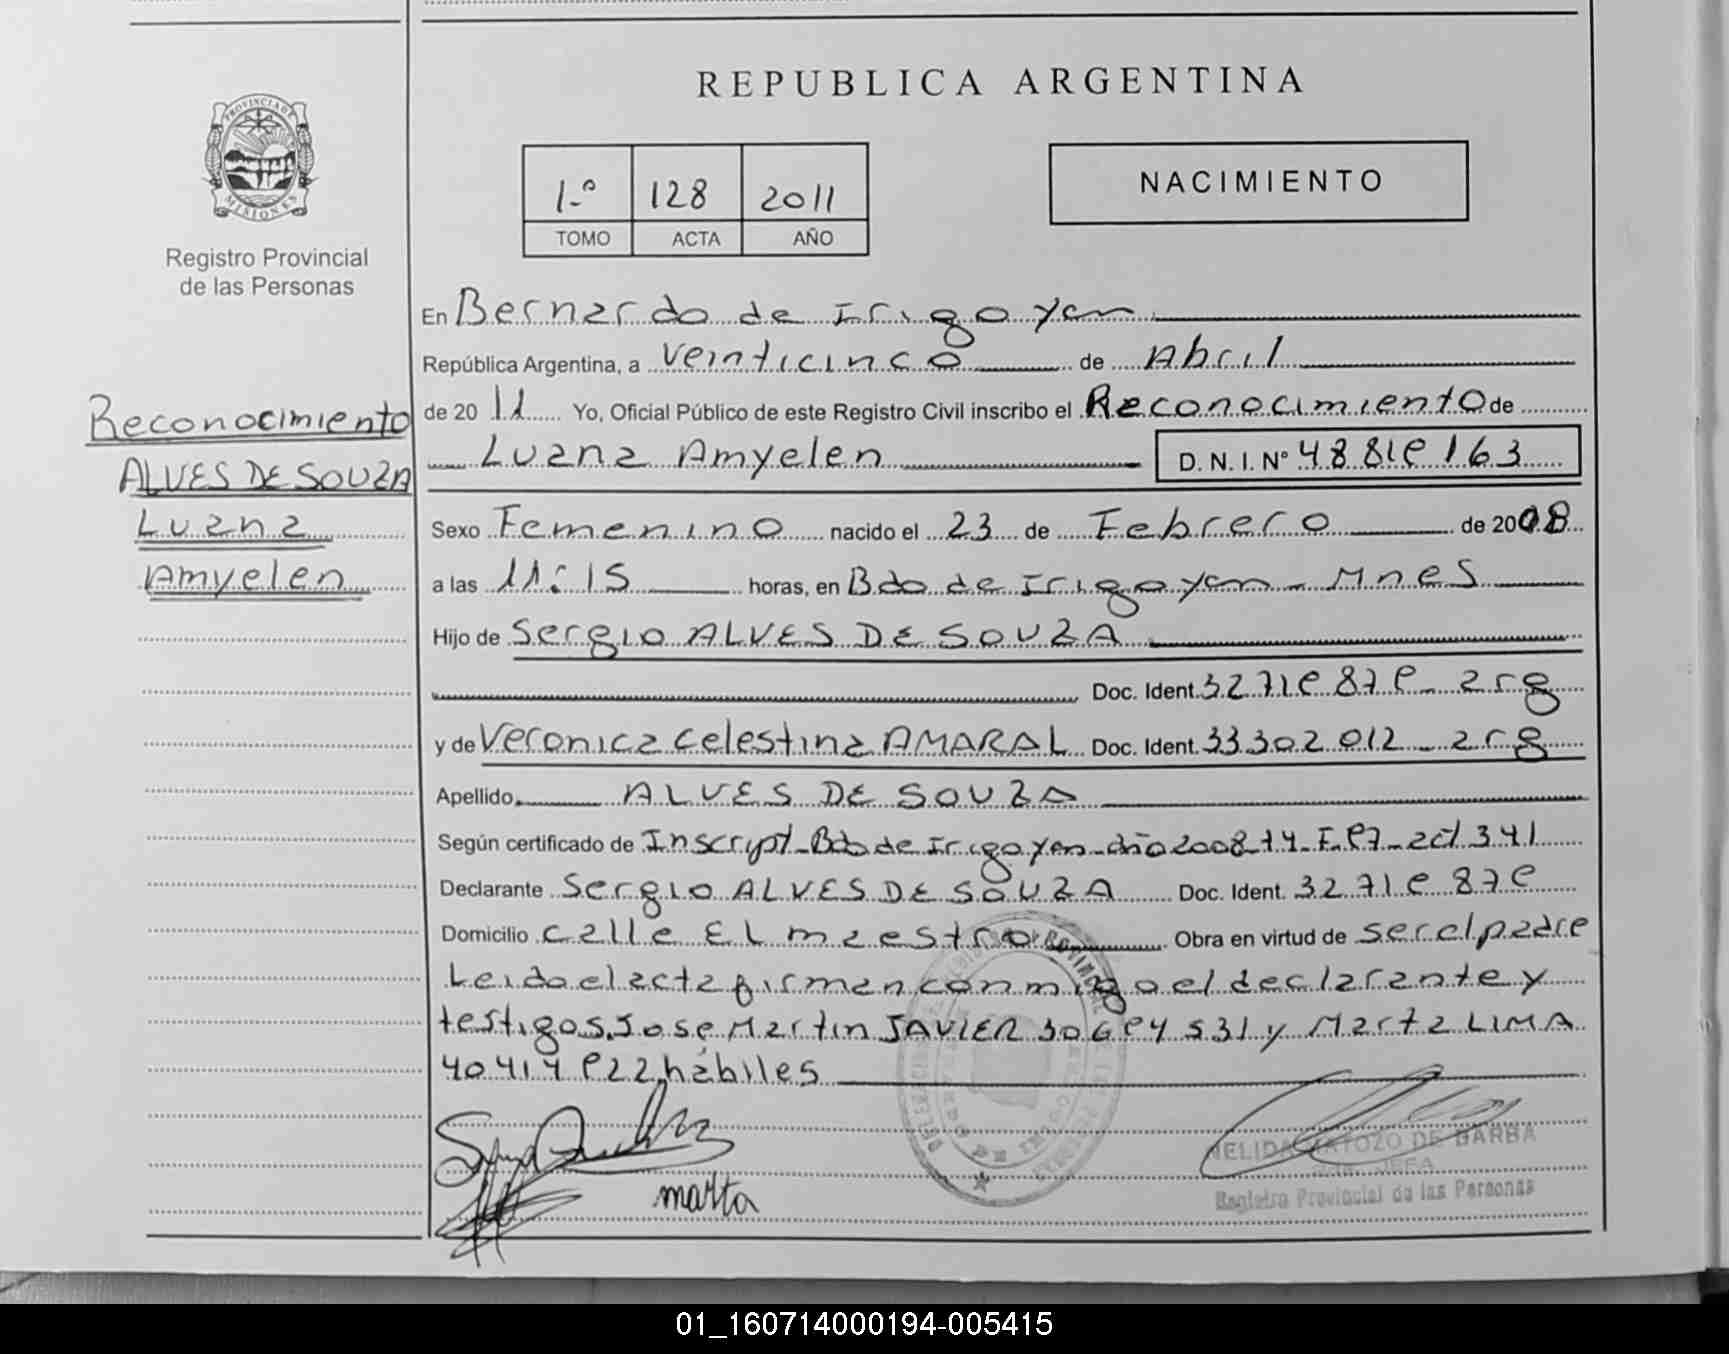 REPUBLICA ARGENTINA
PROVINCIA DE
MISIONES
Registro Provincial
de las Personas
1-º 128 2011
TOMO ACTA AÑO
NACIMIENTO
Reconocimiento
ALVES DE SOUZA
Luana
Amyelen
En Bernardo de Irigoyen
República Argentina, a veinticinco de Abril
de 2011 Yo, Oficial Público de este Registro Civil inscribo el Reconocimiento de
Luana Amyelen D. N. I. Nº 48819163
Sexo Femenino nacido el 23 de Febrero de 2008
a las 11:15 horas, en Bdo de Irigoyen - Mnes
Hijo de Sergio ALVES DE SOUZA
Doc. Ident. 32719879 - arg
y de Veronica Celestina AMARAL Doc. Ident. 33302012 - arg
Apellido ALVES DE SOUZA
Según certificado de Inscript - Bdo de Irigoyen - año 2008 - act 341
Declarante Sergio ALVES DE SOUZA Doc. Ident. 32719879
Domicilio calle EL maestro Obra en virtud de ser el padre
Leido el acta firman conmigo el declarante y
testigos Jose Martin JAVIER 30694531 y Marta LIMA
40414922 hábiles
marta
NELIDA MATOZO DE BARBA
JEFA
Registro Provincial de las Personas
01_160714000194-005415